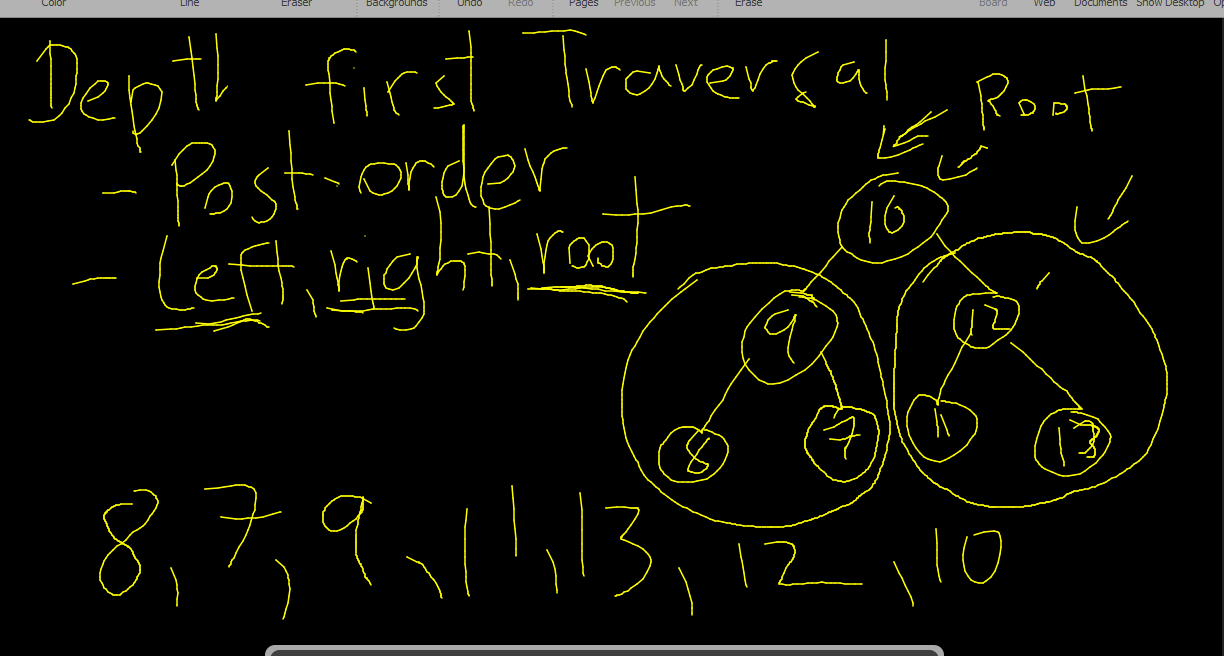 Color Line Eraser Backgrounds Undo Redo Pages Previous Next Erase Board Web Documents Show Desktop
Depth first Traversal
- Post-order
- Left, right, root
Root
10
9 12
8 7 11 13
8, 7, 9, 11, 13, 12, 10